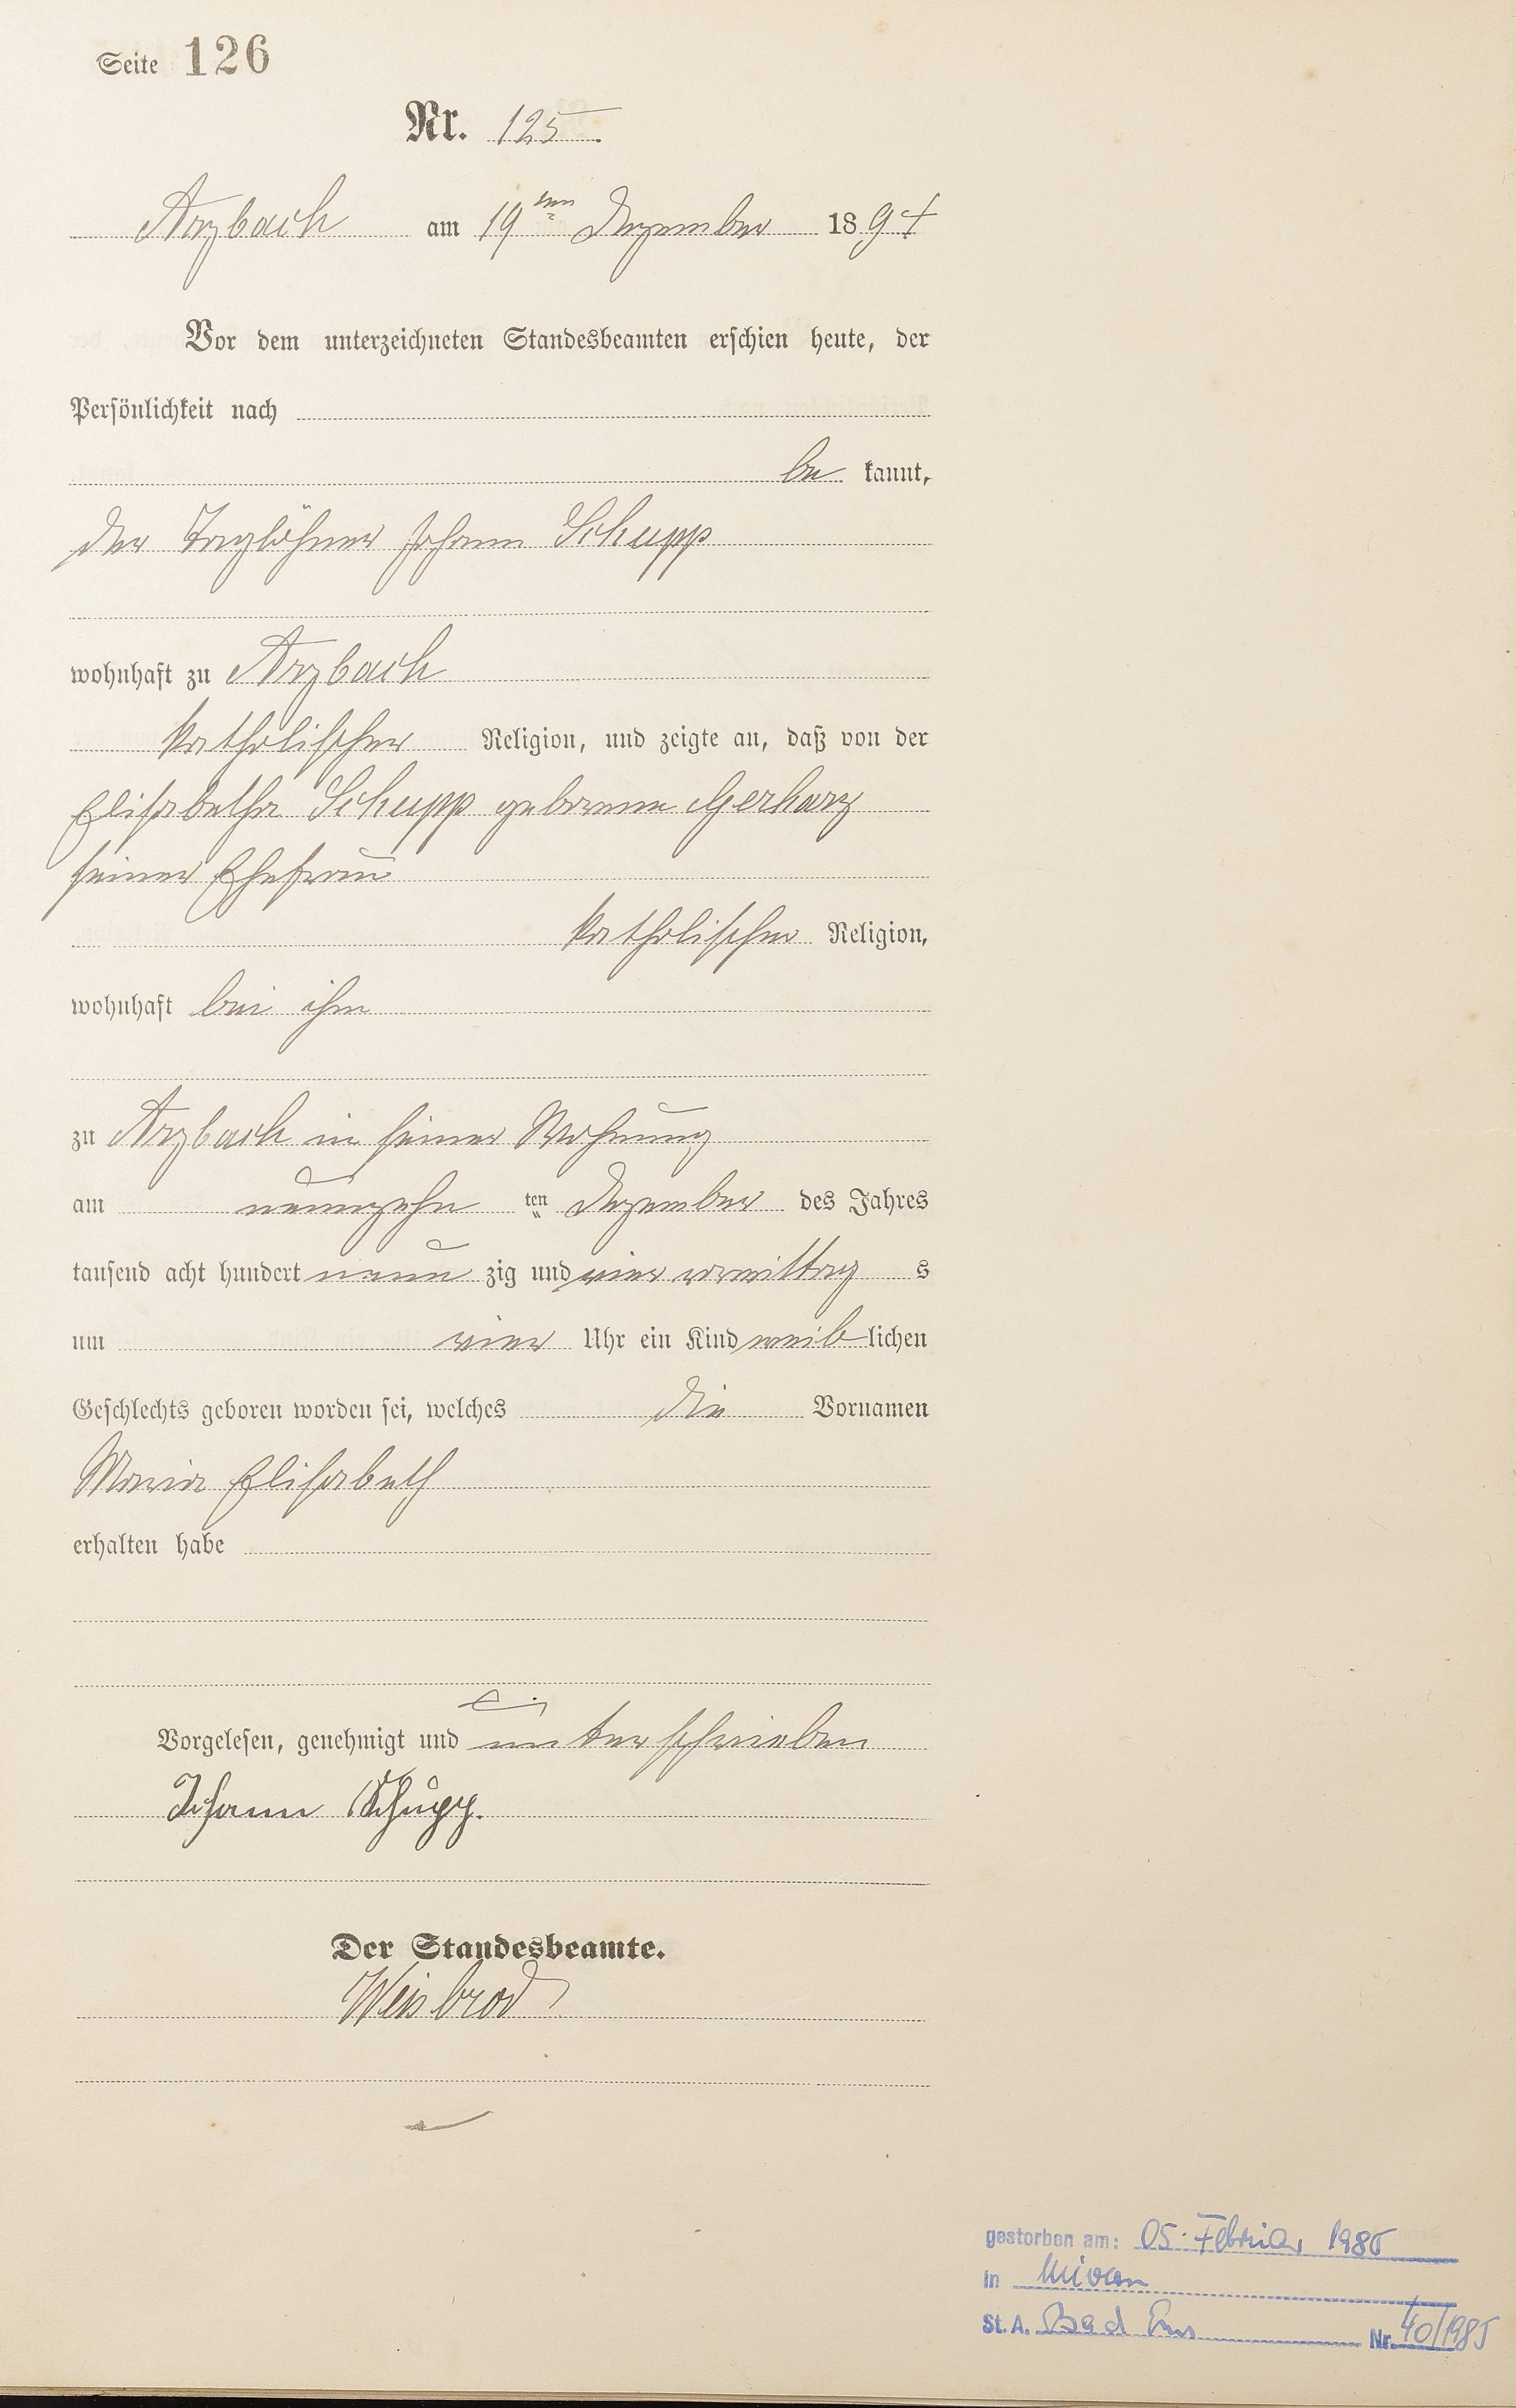 Seite 126
Nr. 125
Arzbach am 19ten Dezember 1894
Vor dem unterzeichneten Standesbeamten erschien heute, der
Persönlichkeit nach
be kannt,
der Taglöhner Johann Schupp
wohnhaft zu Arzbach
katholischer Religion, und zeigte an, daß von der
Elisabetha Schupp geborene Gerharz
seiner Ehefrau
katholischer Religion,
wohnhaft bei ihm
zu Arzbach in seiner Wohnung
am neunzehn ten Dezember des Jahres
tausend acht hundert neun zig und vier vormittag s
um vier Uhr ein Kind weiblichen
Geschlechts geboren worden sei, welches die Vornamen
Maria Elisabeth
erhalten habe
Vorgelesen, genehmigt und unterschrieben
Johann Schupp.
Der Standesbeamte.
Weisbrod
gestorben am: 05. Februar 1985
in
St. A. Bad Ems Nr. 40/1985